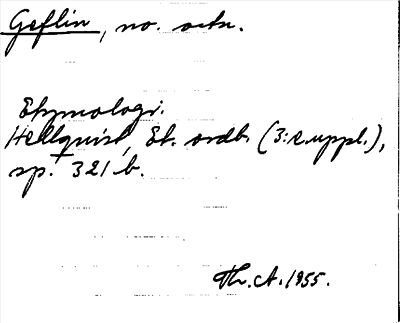 Geflin, no. octn.
Etymologi.
Hellquist, Et. ordb. (3:e uppl.),
sp. 321 b.
Th. A. 1955.